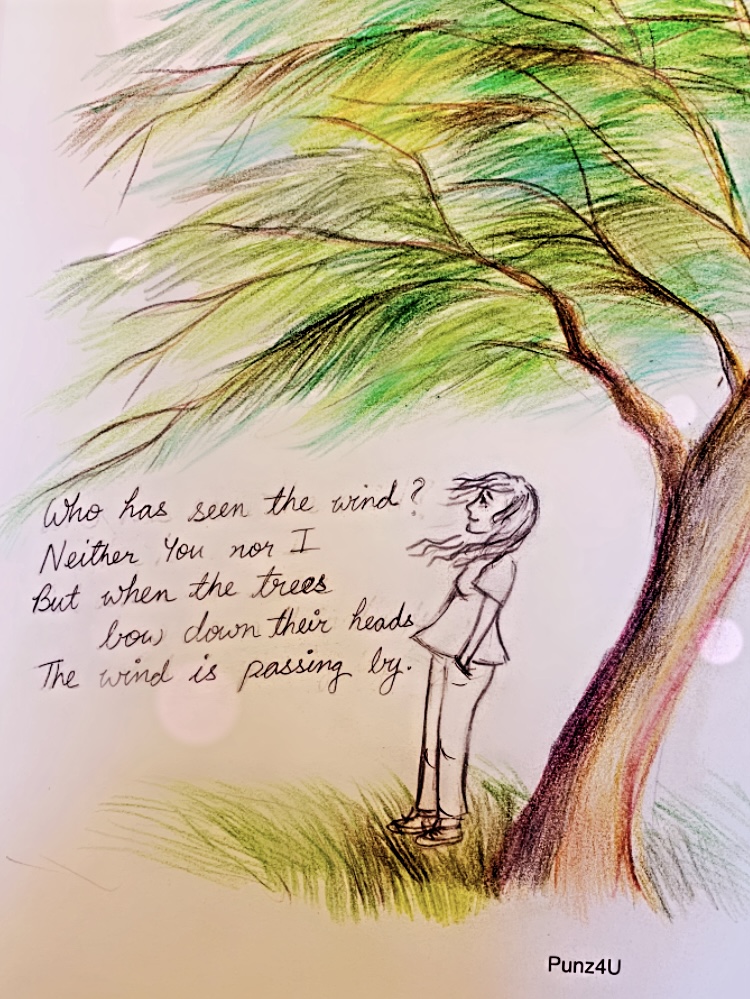 Who has seen the wind?
Neither You nor I
But when the trees
bow down their heads
The wind is passing by.
Punz4U